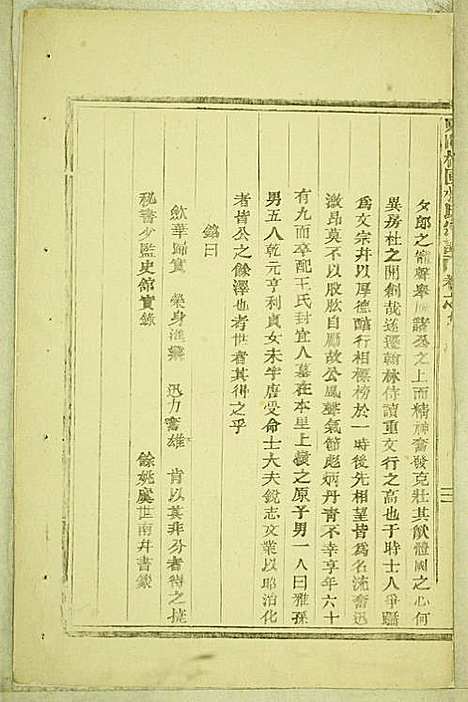 夕郎之寵聲舉諸公之上而精神奮發克壯其猷體國之心何
異房杜之開創哉遂遷翰林侍讀重文行之高也于時士人爭騷
為文宗并以厚德醇行相標榜於一時後先相望皆為名流奮迅
激昂莫不以股肱自勵故公風聲氣節彪炳丹青不幸享年六十
有九而卒配王氏封宜人墓在本里上橫之原子男一人曰雅孫
男五八乾元亨利貞女未字唐受命士大夫銳志文業以昭治化
者皆公之餘澤也者世者其得之乎
銘曰
斂華歸實 榮身進藥 迅力奮雄 肯以其非分者得之捷
秘書少監史館實錄 餘姚虞世南并書錄